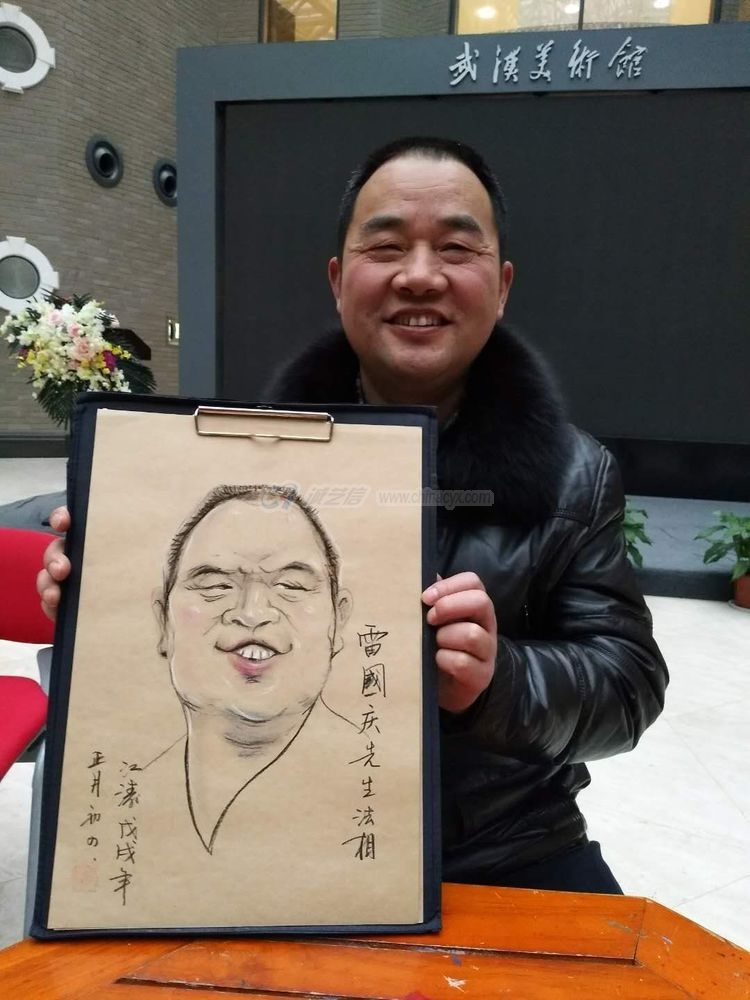 武漢美術館
诚艺信 www.chinacyx.com
雷國庆先生法相
江濤戊戌年
正月初四.